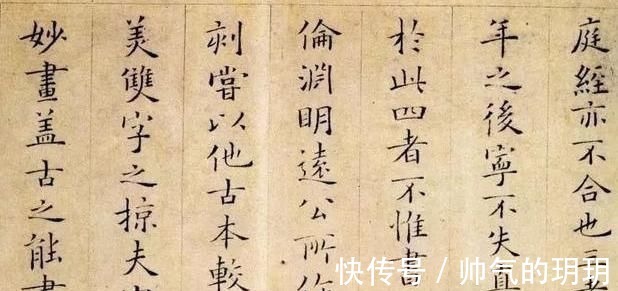 庭經亦不合也
年之後寧不失真
於此四者不惟書
倫淵明遠公所作
刻嘗以他古本較
美雙字之掠夫
妙畫盖古之能書
快传号 / 帅气的玥玥